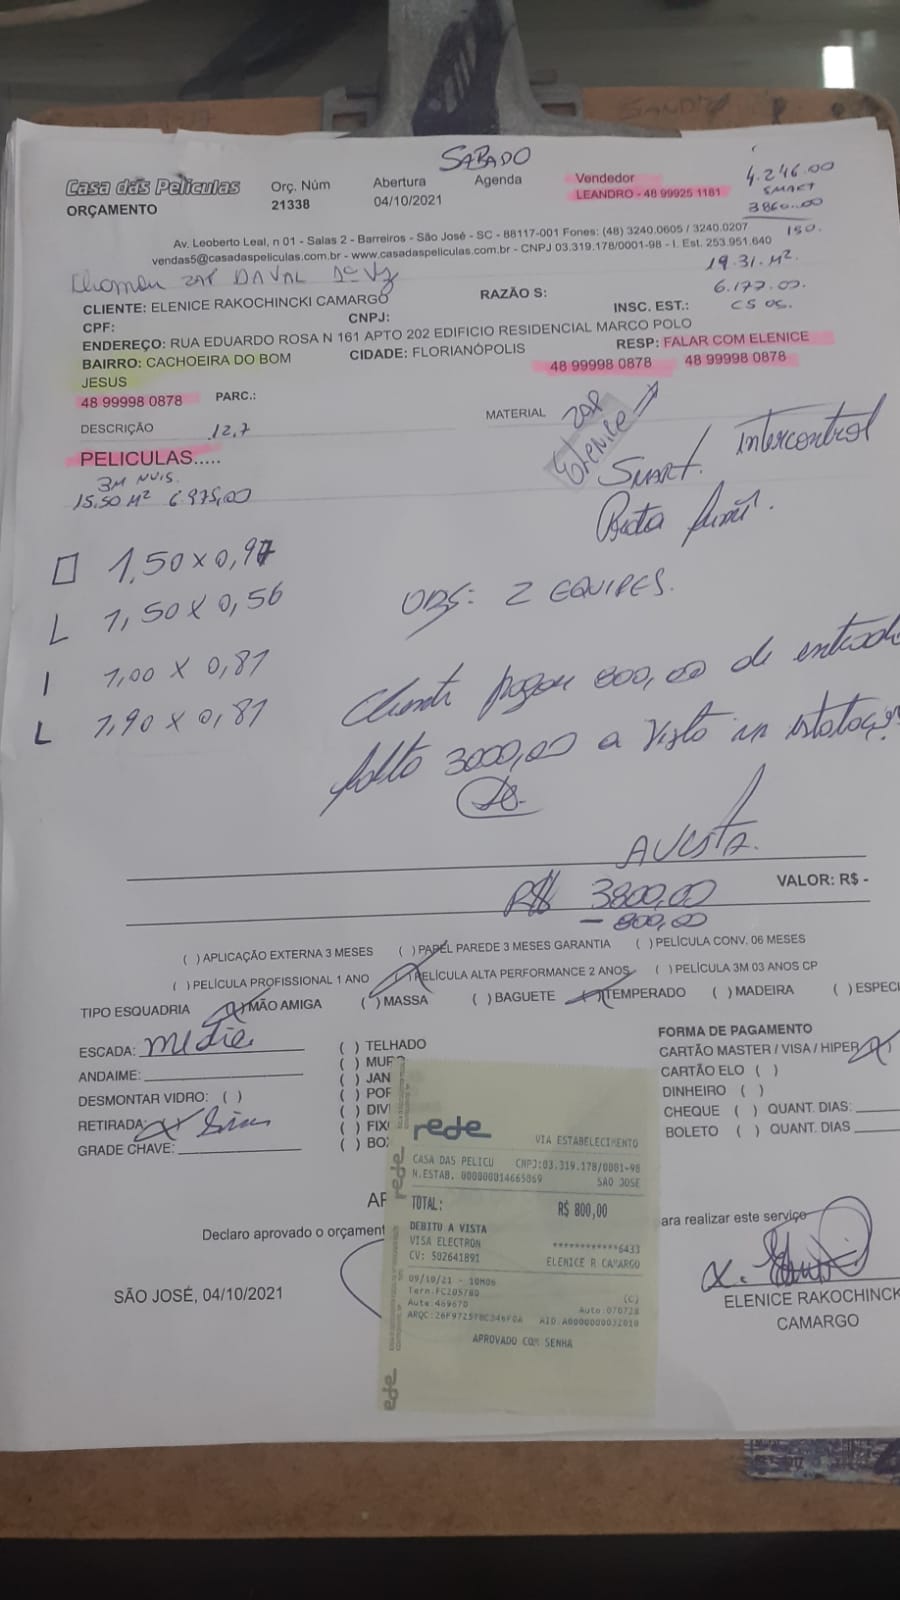 SABADO
Casa das Películas
ORÇAMENTO
Orç. Núm
21338
Abertura
04/10/2021
Agenda
Vendedor
LEANDRO - 48 99925 1181
4.246.00
SMART
3860.00
150.
Av. Leoberto Leal, n 01 - Salas 2 - Barreiros - São José - SC - 88117-001 Fones: (48) 3240.0605 / 3240.0207
vendas5@casadaspeliculas.com.br - www.casadaspeliculas.com.br - CNPJ 03.319.178/0001-98 - I. Est. 253.951.640
19.31. M².
ZAP DAVAL 1ª VZ
6.177.00.
CS 05.
CLIENTE: ELENICE RAKOCHINCKI CAMARGO
RAZÃO S:
CPF:
CNPJ:
INSC. EST.:
ENDEREÇO: RUA EDUARDO ROSA N 161 APTO 202 EDIFICIO RESIDENCIAL MARCO POLO
BAIRRO: CACHOEIRA DO BOM JESUS
CIDADE: FLORIANÓPOLIS
RESP: FALAR COM ELENICE
48 99998 0878
48 99998 0878
48 99998 0878
PARC.:
DESCRIÇÃO
12,7
MATERIAL
ZAP
Elenice
PELICULAS.....
3M NVIS.
15.50 M² 6.975,00
SMART. Intercontrol
Preta fumê.
1,50 x 0,97
OBS: 2 EQUIPES.
L 1,50 x 0,56
I 1,00 x 0,81
L 1,90 x 0,81
Cliente pagou 800,00 de entrada
falta 3000,00 a vista
AVISTA.
VALOR: R$ -
R$ 3800,00
- 800,00
( ) APLICAÇÃO EXTERNA 3 MESES ( ) PAPEL PAREDE 3 MESES GARANTIA ( ) PELÍCULA CONV. 06 MESES
( ) PELÍCULA PROFISSIONAL 1 ANO (X) PELÍCULA ALTA PERFORMANCE 2 ANOS ( ) PELÍCULA 3M 03 ANOS CP
TIPO ESQUADRIA (X) MÃO AMIGA ( ) MASSA ( ) BAGUETE (X) TEMPERADO ( ) MADEIRA ( ) ESPECI
ESCADA: Média
ANDAIME:
DESMONTAR VIDRO: ( )
RETIRADA: X Sim
GRADE CHAVE:
( ) TELHADO
( ) MURO
( ) JAN
( ) POR
( ) DIV
( ) FIX
( ) BO
FORMA DE PAGAMENTO
CARTÃO MASTER / VISA / HIPER (X)
CARTÃO ELO ( )
DINHEIRO ( )
CHEQUE ( ) QUANT. DIAS:
BOLETO ( ) QUANT. DIAS
rede
rede
VIA ESTABELECIMENTO
CASA DAS PELICU CNPJ:03.319.178/0001-98
N.ESTAB. 000000014665869 SAO JOSE
TOTAL: R$ 800,00
DEBITO A VISTA
VISA ELECTRON ************6433
CV: 502641891 ELENICE R CAMARGO
09/10/21 - 10H06
Term.FC205780 (C)
Aute:469670 Auto:070728
AID.A0000000032010
APROVADO COM SENHA
ede
AP
Declaro aprovado o orçament
ara realizar este serviço
SÃO JOSÉ, 04/10/2021
X.
ELENICE RAKOCHINCK
CAMARGO